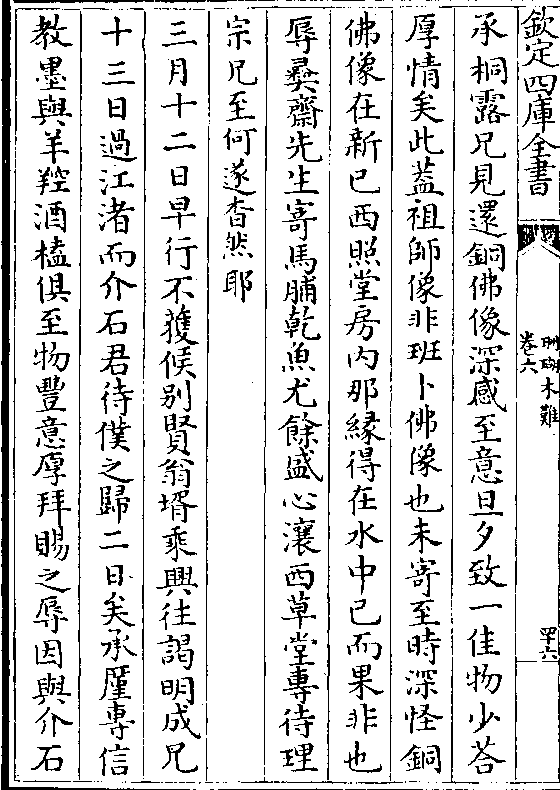 欽定四庫全書
珊瑚木難
卷六
四十六
承桐露兄見還銅佛像深感至意旦夕致一佳物少荅
厚情矣此葢祖師像非班卜佛像也未寄至時深怪銅
佛像在新已西照堂房内那縁得在水中已而果非也
辱彞齋先生寄馬腩乾魚尤餘盛心瀼西草堂專待理
宗兄至何遂杳然耶
三月十二日早行不獲候别賢翁壻乘興往謁明成兄
十三日過江渚而介石君待僕之歸二日矣承廑專信
教墨與羊羫酒榼俱至物豐意厚拜賜之辱因與介石